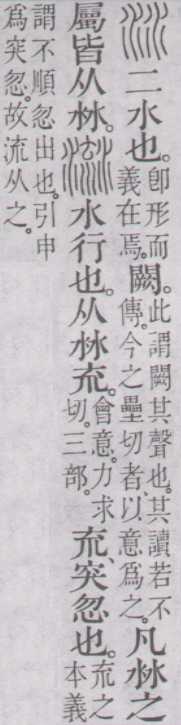 沝二水也。卽形而義在焉。闕。此謂闕其聲也。其讀若不傳。今之壘切者、以意爲之。凡沝之
屬皆从沝。水行也。从沝㐬。會意。力求切。三部。㐬突忽也。㐬之本義
謂不順忽出也。引申爲突忽。故流从之。